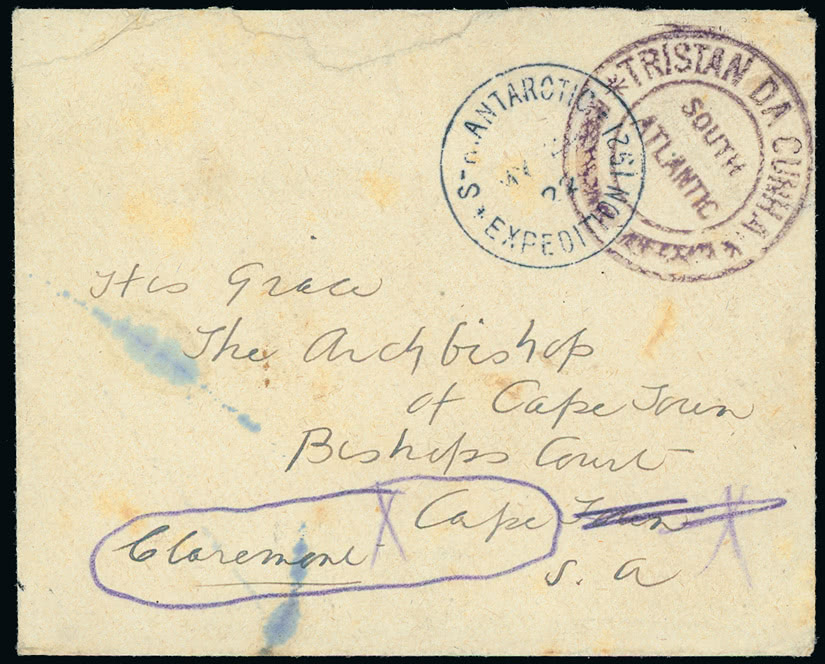 TRISTAN DA CUNHA
SOUTH
ATLANTIC
S-R. ANTARCTIC
EXPEDITION 1921
His Grace
The Archbishop
of Cape Town
Bishops Court
Claremont X Cape Town X
S. A